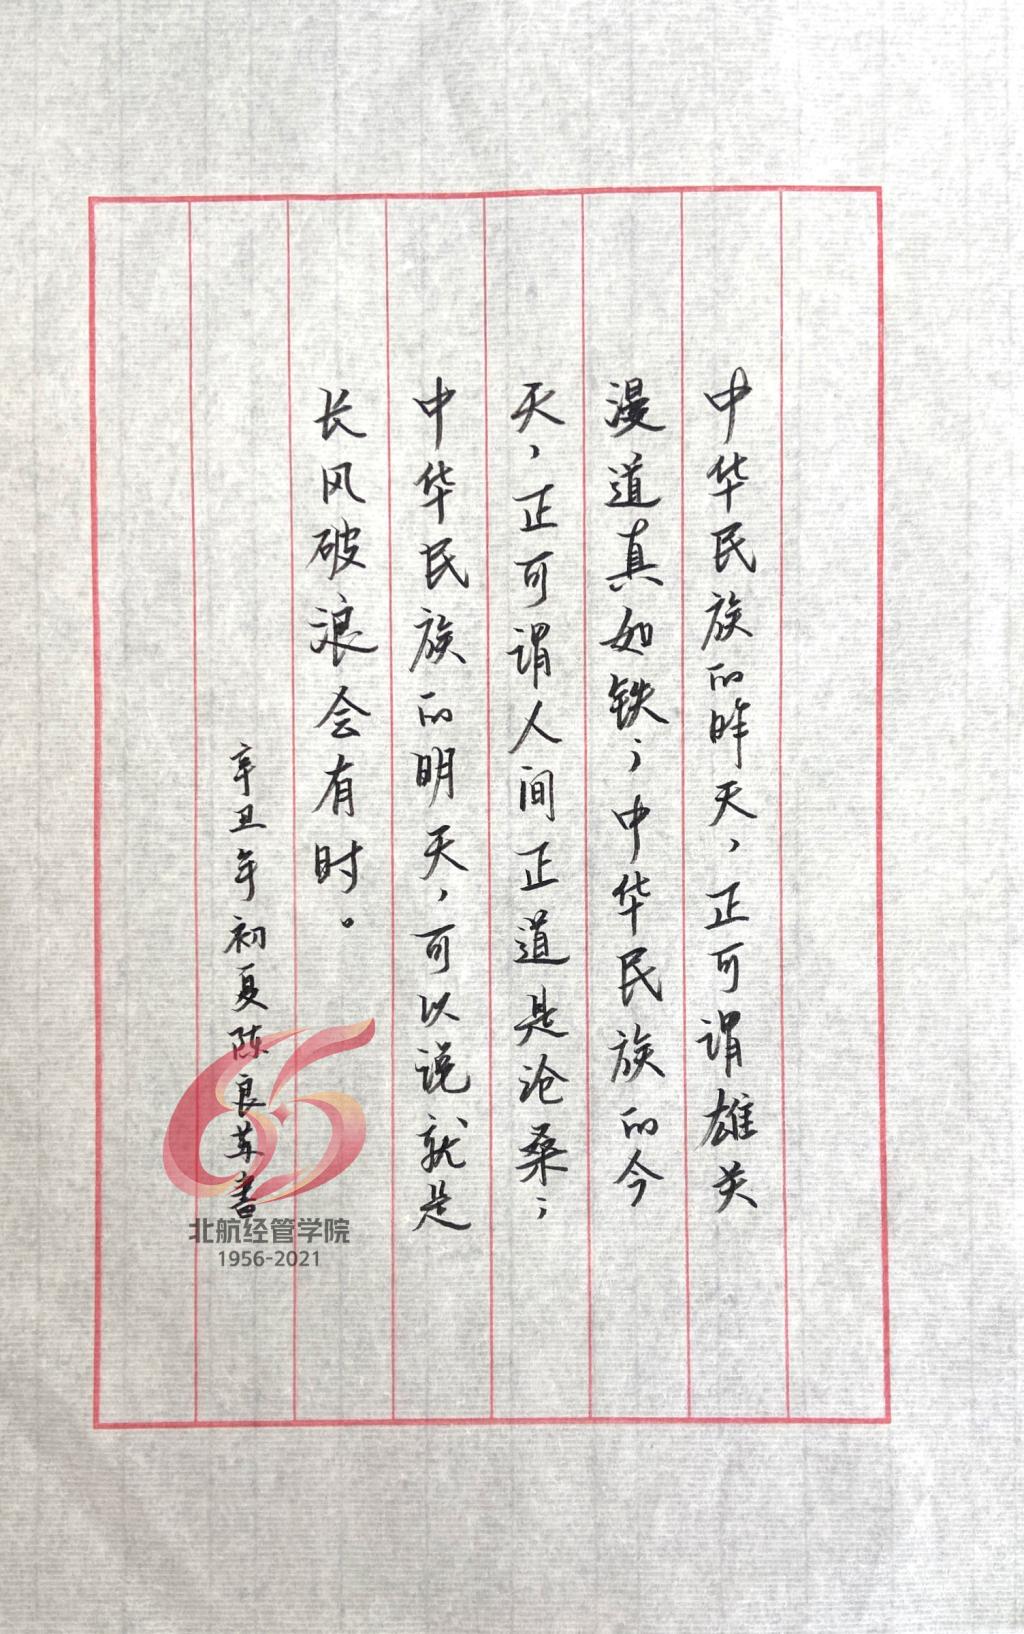 中华民族的昨天，正可谓雄关
漫道真如铁；中华民族的今
天，正可谓人间正道是沧桑；
中华民族的明天，可以说就是
长风破浪会有时。
辛丑年初夏陈良英书
北航经管学院
1956-2021